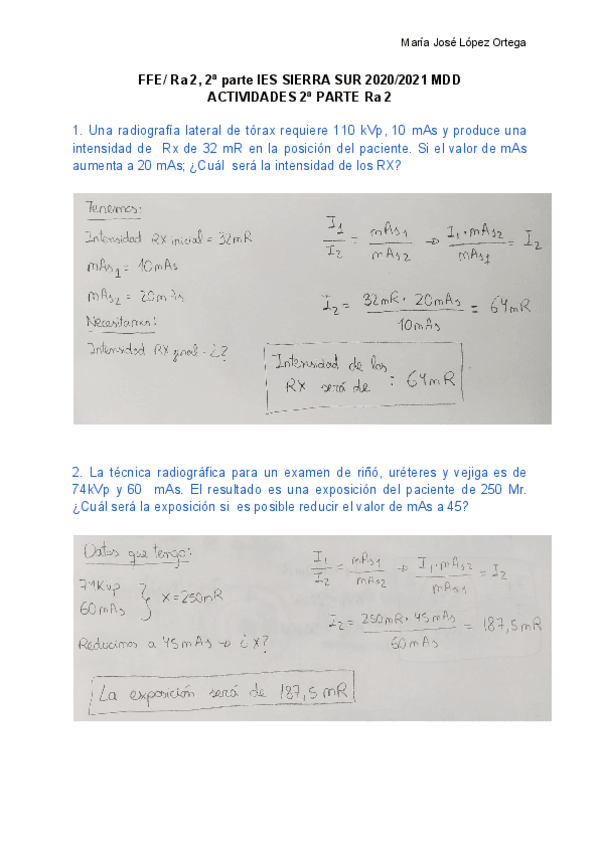 María José López Ortega
FFE/ Ra 2, 2ª parte IES SIERRA SUR 2020/2021 MDD
ACTIVIDADES 2ª PARTE Ra 2
1. Una radiografía lateral de tórax requiere 110 kVp, 10 mAs y produce una
intensidad de Rx de 32 mR en la posición del paciente. Si el valor de mAs
aumenta a 20 mAs; ¿Cuál será la intensidad de los RX?
Tenemos:
Intensidad RX inicial = 32mR
mAs1 = 10mAs
mAs2 = 20mAs
Necesitamos:
Intensidad RX final = ¿?
I1/I2 = mAs1/mAs2 → I1·mAs2/mAs1 = I2
I2 = 32mR · 20mAs/10mAs = 64mR
Intensidad de los
RX será de : 64mR
2. La técnica radiográfica para un examen de riñó, uréteres y vejiga es de
74kVp y 60 mAs. El resultado es una exposición del paciente de 250 Mr.
¿Cuál será la exposición si es posible reducir el valor de mAs a 45?
Datos que tengo:
74Kvp
60mAs } x = 250mR
Reducimos a 45mAs → ¿x?
I1/I2 = mAs1/mAs2 → I1·mAs2/mAs1 = I2
I2 = 250mR · 45mAs/60mAs = 187,5mR
La exposición será de 187,5 mR